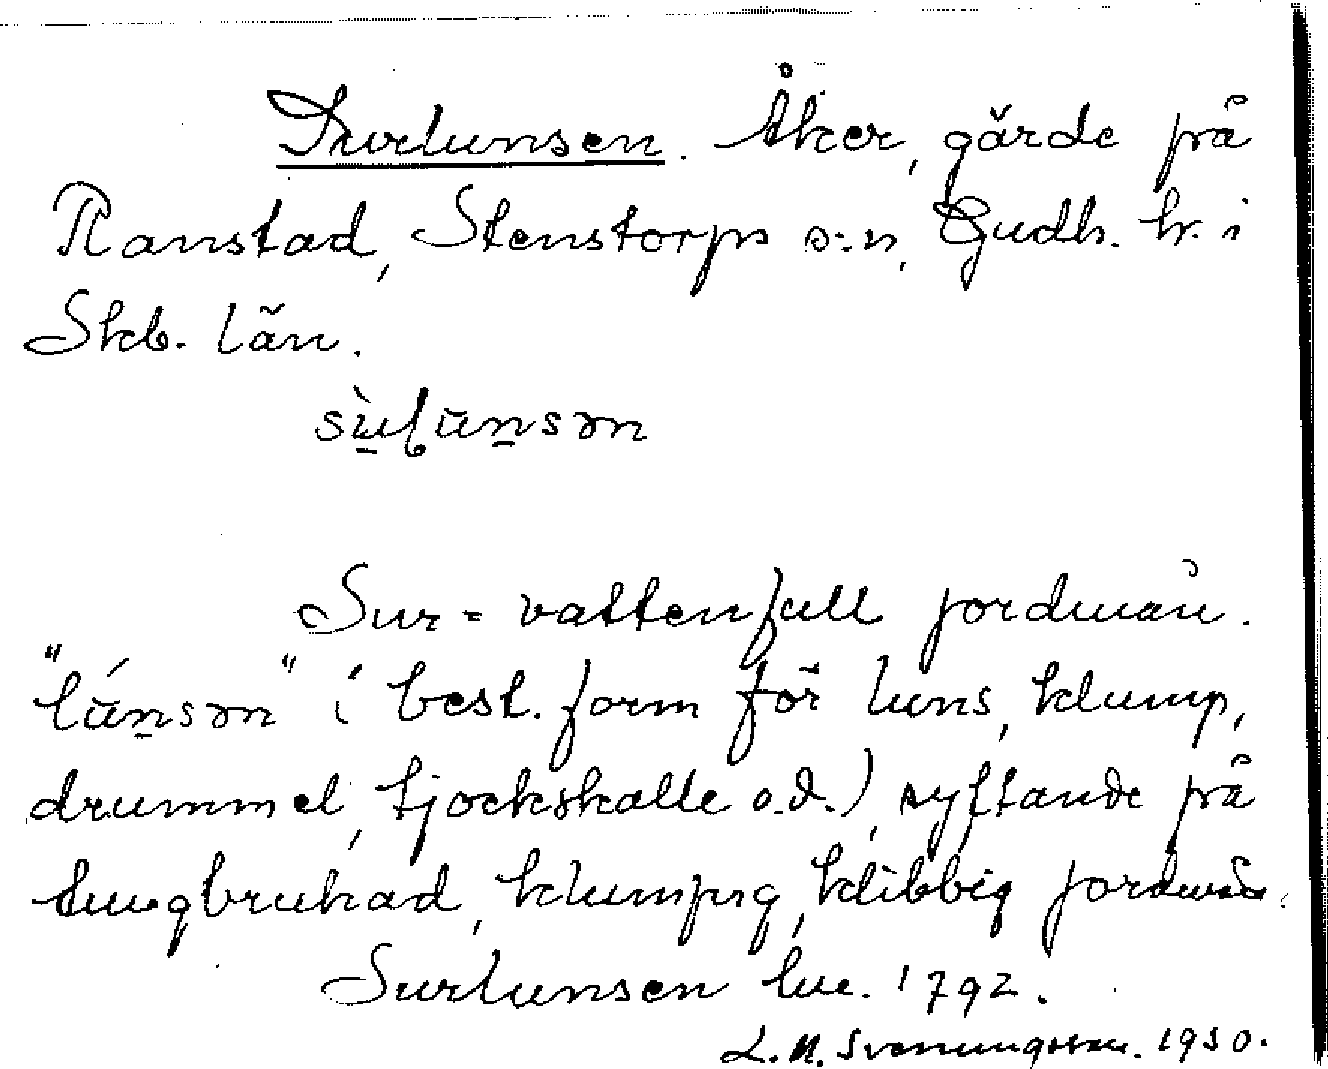 Surlunsen. Åker, gärde på
Ranstad, Stenstorps s:n, Gudh. hr. i
Skb. län.
Sur = vattenfull jordmån.
" i best. form för luns, klump,
drummel, tjockskalle o.d.), syftande på
tungbrukad, klumpig, klibbig jordmån.
Surlunsen lue. 1792.
L. M. Svenungsson. 1930.